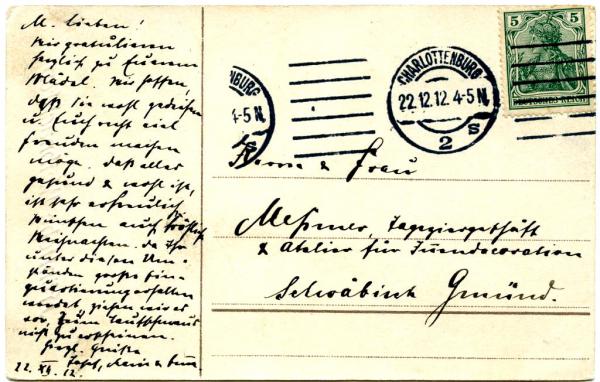 M. Lieben!
Wir gratulieren
herzlich zu Eurem
Mädel. Wir hoffen,
daß sie wohl gedeihen
u. Euch recht viel
Freuden machen
möge. Daß alles
gesund & wohl ist,
ist sehr erfreulich
wünschen auch fröhlich
Weihnachten. Da Ihr
unter diesen Um-
ständen große Ein-
quartierung erhalten
werdet, ziehen wir es
vor, zum Taufschmaus
nicht zu erscheinen.
Herzl. Grüße
22. XII. 12.
NBURG
4-5 N.
S
CHARLOTTENBURG
22.12.12. 4-5 N.
2 S
5 5
DEUTSCHES REICH
Herrn & Frau
Meßmer, Tapeziergeschäft
& Atelier für Innendecoration
Schwäbisch Gmünd.